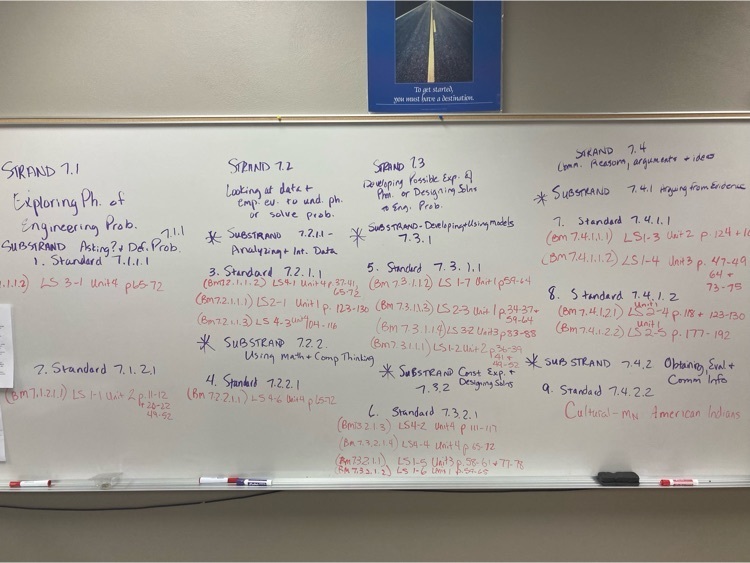 To get started,
you must have a destination.
STRAND 7.1
Exploring Ph. of
Engineering Prob.
7.1.1
SUBSTRAND Asking? + Def. Prob.
1. Standard 7.1.1.1
1.1.2) LS 3-1 Unit 4 p65-72
2. Standard 7.1.2.1
(Bm 7.1.2.1.1) LS 1-1 Unit 2 p. 11-12
+26-22
49-52
STRAND 7.2
Looking at data +
emp. ev. to und. ph.
or solve prob.
* SUBSTRAND 7.2.1 -
Analyzing + Int. Data
3. Standard 7.2.1.1
(Bm 7.2.1.1.2) LS4-1 Unit 4 p. 37-41,
65-72
(Bm 7.2.1.1.1) LS2-1 Unit 1 p. 123-130
(Bm 7.2.1.1.3) LS 4-3 Unit 4 104-116
* SUBSTRAND 7.2.2.
Using math + Comp Thinking
4. Standard 7.2.2.1
(Bm 7.2.2.1.1) LS 4-6 Unit 4 p 65-72
STRAND 7.3
Developing Possible Exp. of
Phm. or Designing Solns
to Eng. Prob.
* SUBSTRAND - Developing + Using models
7.3.1
5. Standard 7.3.1.1
(Bm 7.3.1.1.2) LS 1-7 Unit 1 p59-64
(Bm 7.3.1.1.3) LS 2-3 Unit 1 p 34-37+
59-64
(Bm 7.3.1.1.4) LS3-2 Unit 3 p 83-88
(Bm 7.3.1.1.1) LS1-2 Unit 2 p36-39
+41+
* SUBSTRAND Const Exp. +
7.3.2 Designing Solns
6. Standard 7.3.2.1
(Bm 7.3.2.1.3) LS4-2 Unit 4 p 111-117
(Bm 7.3.2.1.4) LS4-4 Unit 4 p 65-72
(Bm 7.3.2.1.1) LS 1-5 Unit 3 p. 58-61 + 77-78
(Bm 7.3.2.1.2) LS 1-6 Unit 1 p.59-65
STRAND 7.4
Comm. Reasom, arguments + ideas
* SUBSTRAND 7.4.1 Arguing from Evidence
7. Standard 7.4.1.1
(Bm 7.4.1.1.1) LS1-3 Unit 2 p. 124 +
(Bm 7.4.1.1.2) LS1-4 Unit 3 p. 47-49
64 +
73-75
8. Standard 7.4.1.2
Unit 1
(Bm 7.4.1.2.1) LS 2-4 p. 118 + 123-130
Unit 1
(Bm 7.4.1.2.2) LS 2-5 p. 177-192
* SUBSTRAND 7.4.2 Obtaining, Eval +
Comm Info
9. Standard 7.4.2.2
Cultural - MN American Indians